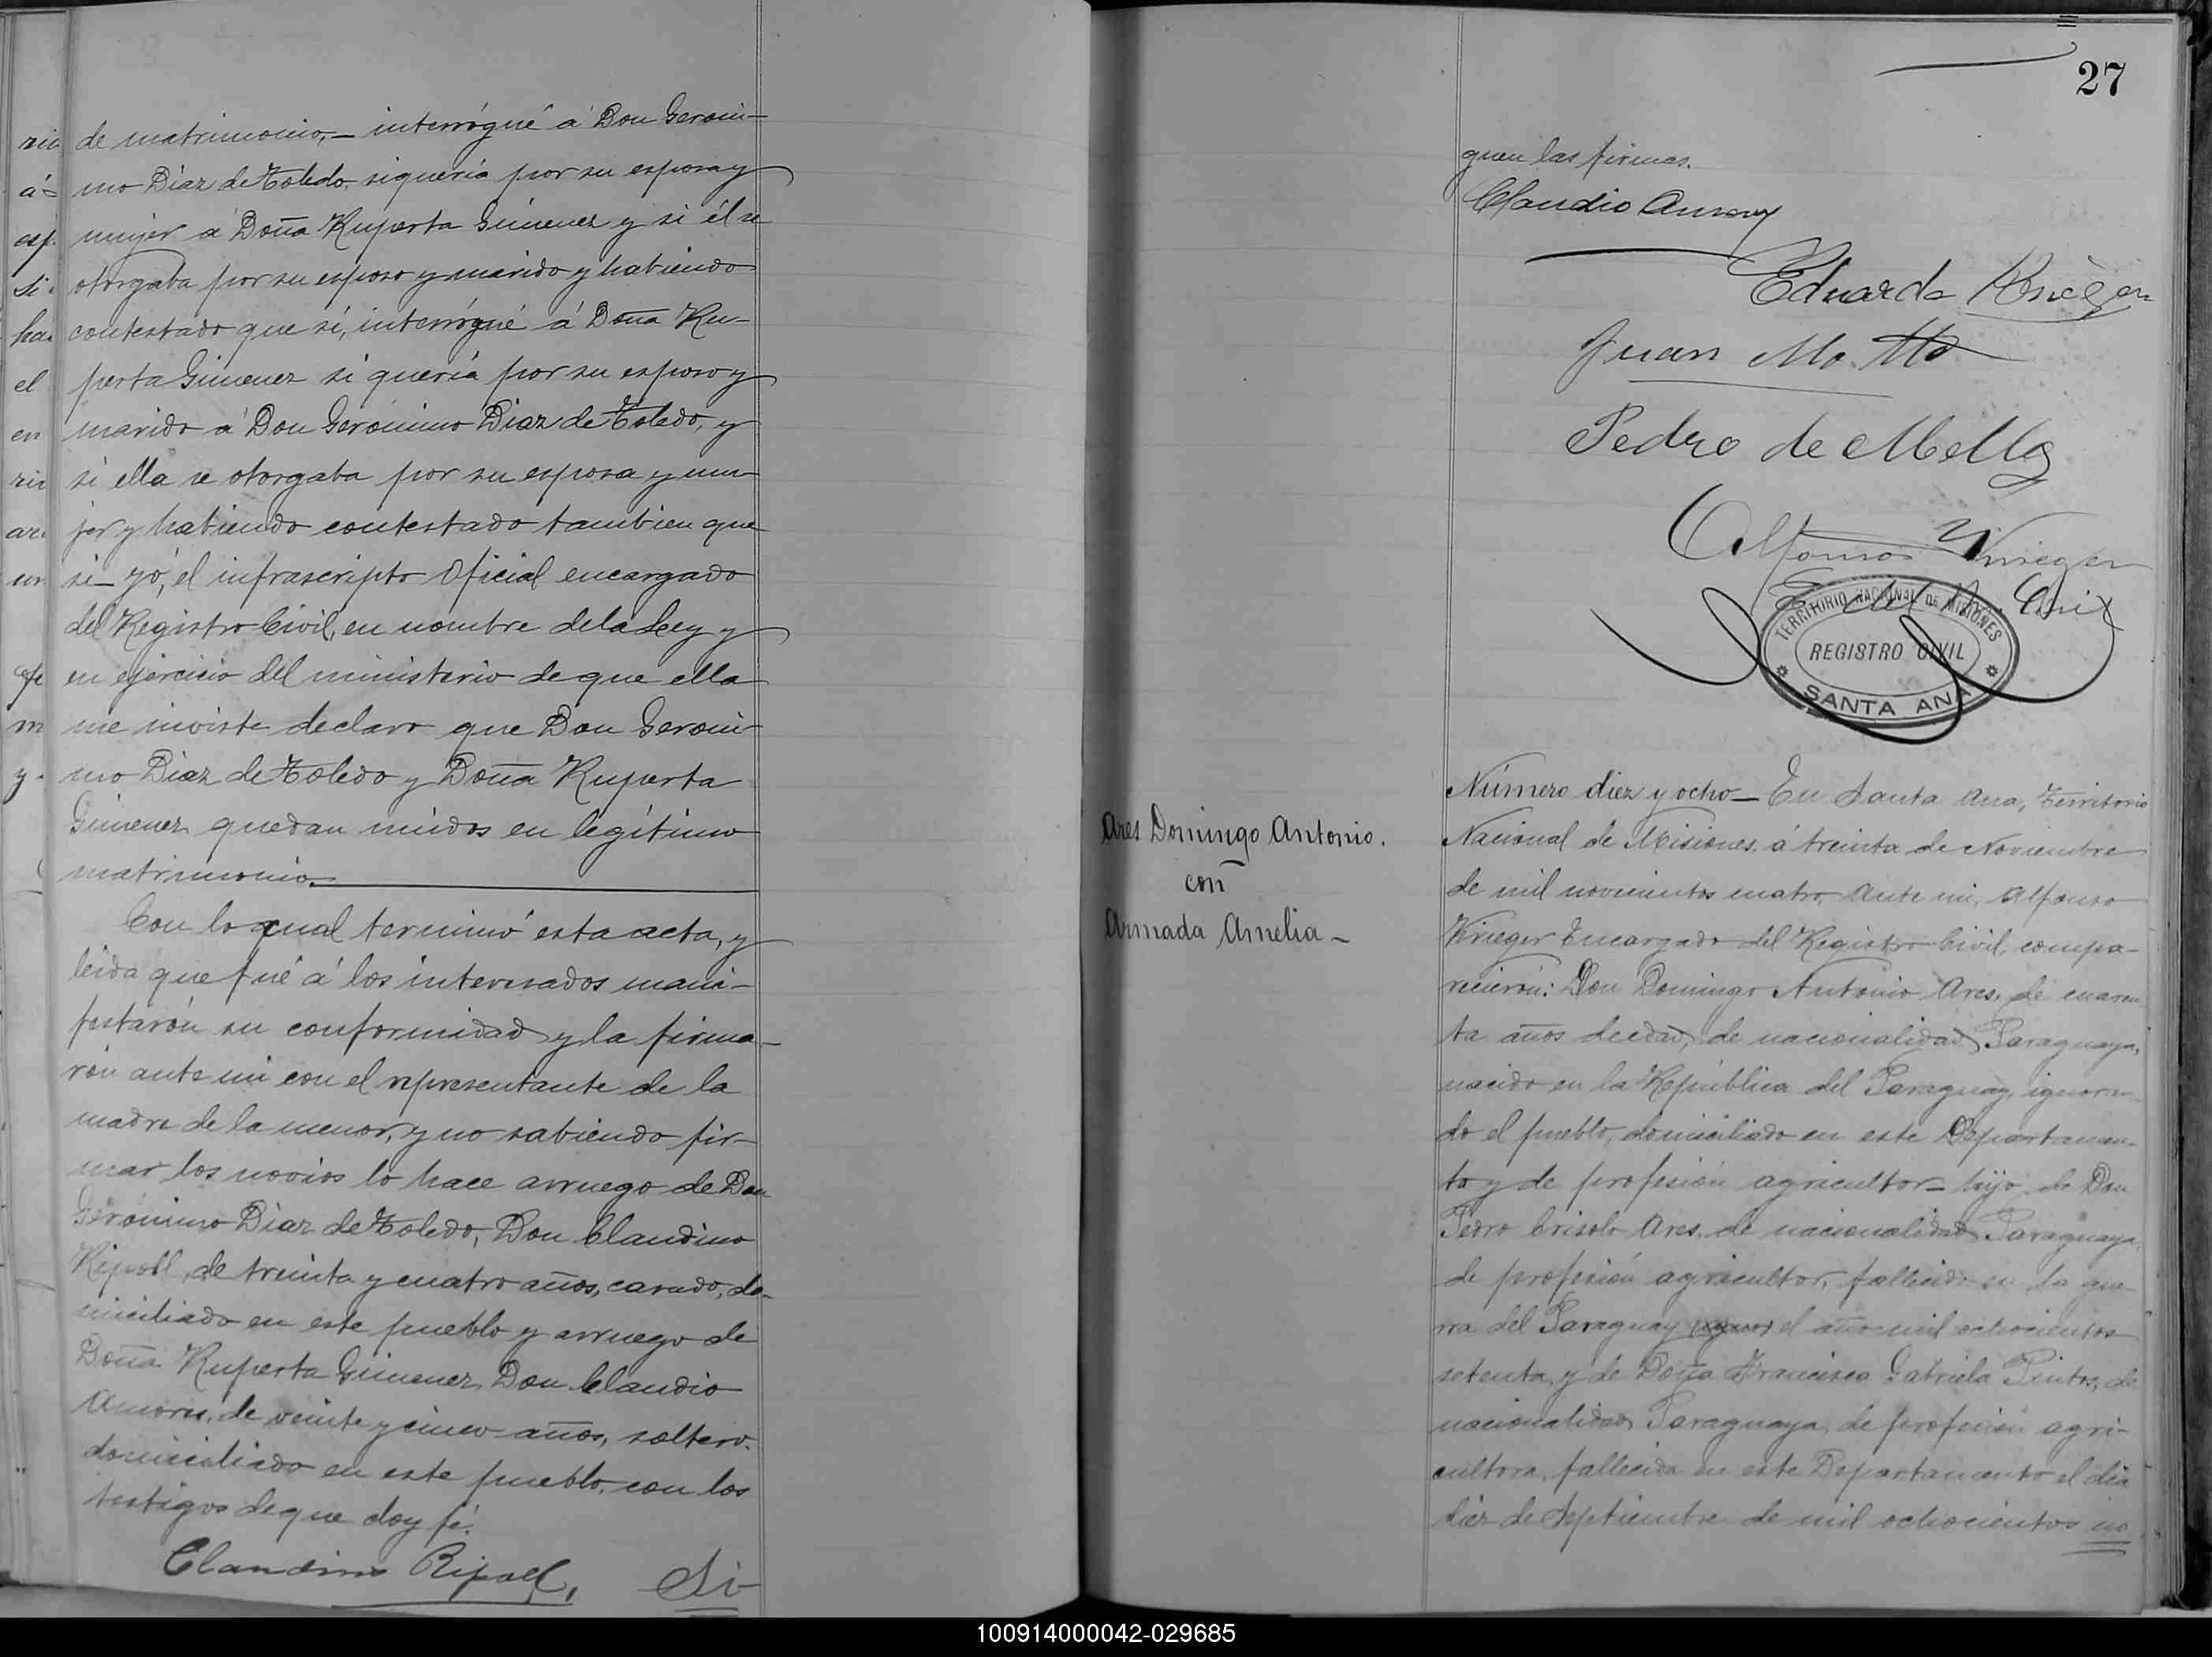 de matrimonio,— interrógué á Don Geroni-
mo Díaz de Toledo si quería por su esposa y
mujer á Doña Ruperta Gimenez y si él se
otorgaba por su esposo y marido y habiendo
contestado que sí, interrógué á Doña Ru-
perta Gimenez si quería por su esposo y
marido á Don Gerónimo Díaz de Toledo, y
si ella se otorgaba por su esposa y mu-
jer y habiendo contestado tambien que
si— yó, el infrascripto Oficial encargado
del Registro Civil, en nombre de la Ley y
en ejercicio del ministerio de que ella
me inviste declaro que Don Geróni-
mo Díaz de Toledo y Doña Ruperta
Gimenez quedan unidos en legítimo
matrimonio.
Con lo cual terminó esta acta, y
leída que fué á los interesados mani-
festarón su conformidad y la firma-
rón ante mi con el representante de la
madre de la menor, y no sabiendo fir-
mar los novios lo hace arruego de Don
Gerónimo Díaz de Toledo, Don Claudino
Ripoll, de treinta y cuatro años, casado, do-
miciliado en este pueblo y arruego de
Doña Ruperta Gimenez Don Claudio
de veinte y cinco años, soltero,
domiciliado en este pueblo, con los
testigos de que doy fé.
Claudino Ripoll, Si-
27
guen las firmas.
Claudio
Eduardo Krieger
Juan Motto
Pedro de Mello
Alfonso Krieger
E. del R. Civil
TERRITORIO NACIONAL DE MISIONES
REGISTRO CIVIL
SANTA ANA
Ares Domingo Antonio.
con
Armada Amelia—
Número diez y ocho— En Santa Ana, Territorio
Nacional de Misiones, á treinta de Noviembre
de mil novecientos cuatro, ante mi, Alfonso
Krieger Encargado del Registro Civil, compa-
recieron: Don Domingo Antonio Ares, de cuaren
ta años de edad, de nacionalidad Paraguaya,
nacido en la República del Paraguay, ignoran-
do el pueblo, domiciliado en este Departamen-
to y de profesión agricultor— hijo de Don
Pedro Crisolo Ares, de nacionalidad Paraguaya,
de profesión agricultor, fallecido en la gue-
rra del Paraguay el año mil ochocientos
setenta, y de Doña Francisca Gabriela Pintos, de
nacionalidad Paraguaya, de profesión agri-
cultora, fallecida en este Departamento el día
diez de Septiembre de mil ochocientos no
100914000042-029685